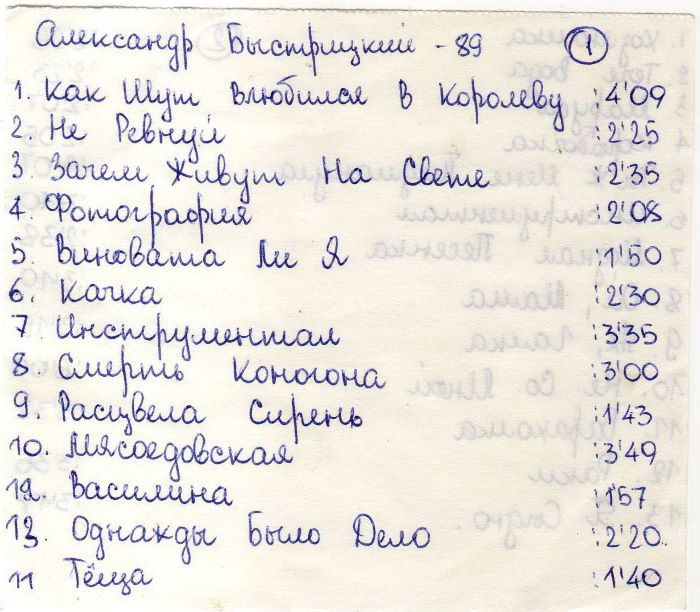 Александр Быстрицкий - 89 1
1. Как Шут Влюбился В Королеву :4'09
2. Не Ревнуй :2'25
3. Зачем Живут На Свете :2'35
4. Фотография :2'08
5. Виновата Ли Я :1'50
6. Качка :2'30
7. Инструментал :3'35
8. Смерть Коногона :3'00
9. Расцвела Сирень :1'43
10. Мясоедовская :3'49
12. Василина :1'57
13. Однажды Было Дело :2'20
11 Тёща :1'40